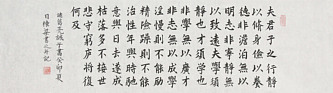 夫君子之行靜
以修身儉以養
德非澹泊無以
明志非寧靜無
以致遠夫學須
靜也才須學也
非學無以廣才
非志無以成學
淫慢則不能勵
精險躁則不能
治性年與時馳
意與日去遂成
枯落多不接世
悲守窮廬將復
何及
諸葛亮誡子書癸卯夏